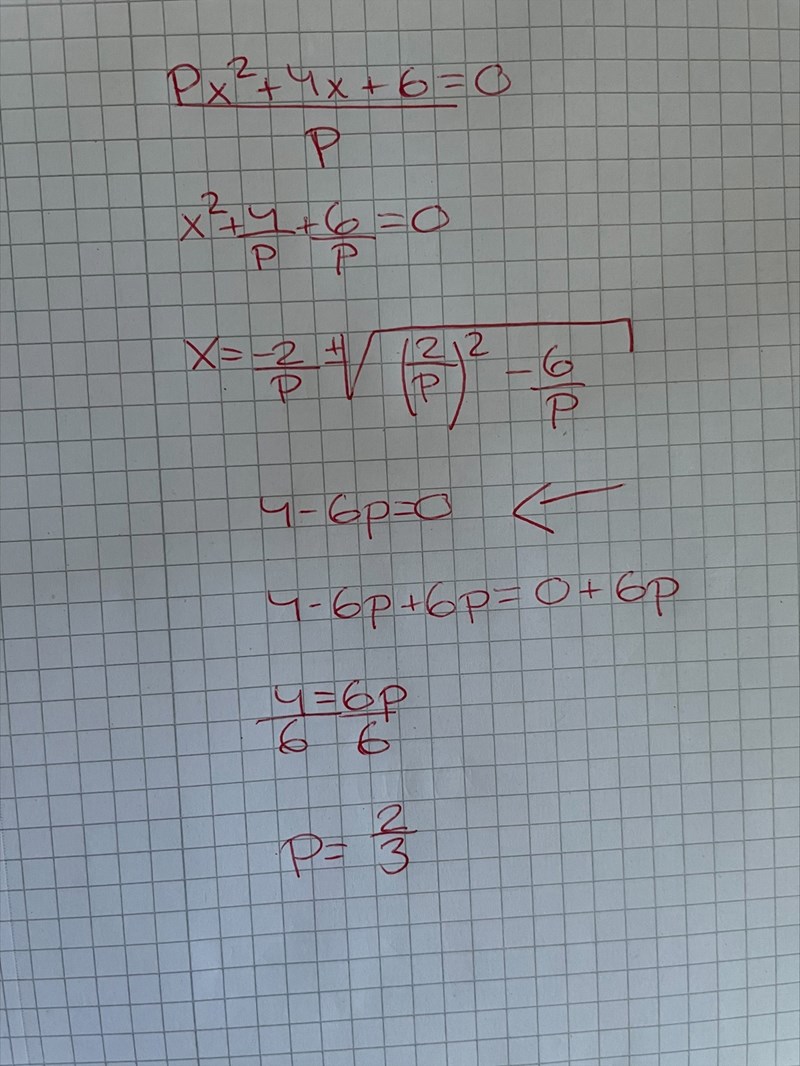 Px²+4x+6=0
P
x²+4/p+6/p=0
x=-2/p±√(2/p)²-6/p
4-6p=0 ←
4-6p+6p=0+6p
4=6p
6 6
p=2/3